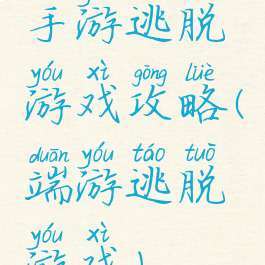 手游逃脱
yóu xì gōng lüè
游戏攻略(
duān yóu táo tuō
端游逃脱
yóu xì
游戏)